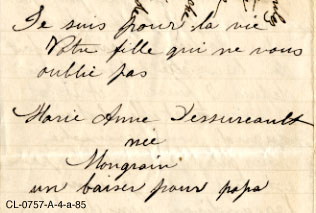 Je suis pour la vie
Votre fille qui ne vous
oublie pas
Marie Anne Dessureault
nee
Mongrain
un baiser pour papa
CL-0757-A-4-a-85